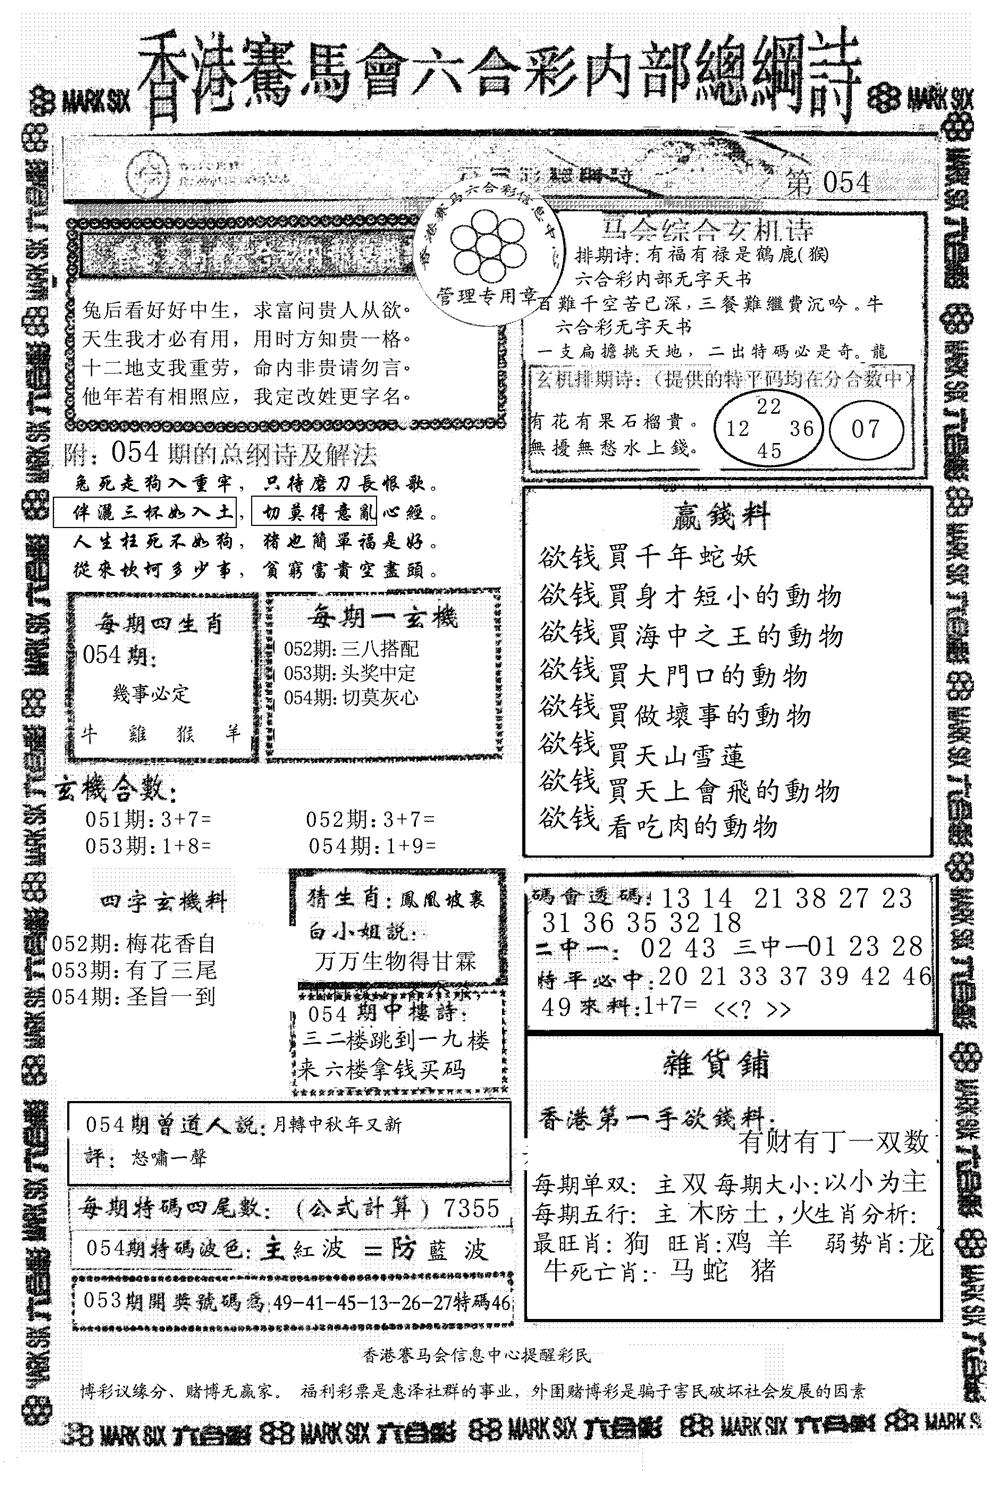 香港賽馬會六合彩内部總綱詩
MARK SIX
MARK SIX
第 054
香港赛马六合彩信息中心
管理专用章
兔后看好好中生，求富问贵人从欲。
天生我才必有用，用时方知贵一格。
十二地支我重劳，命内非贵请勿言。
他年若有相照应，我定改姓更字名。
马会综合玄机诗
排期诗: 有福有禄是鶴鹿(猴)
六合彩内部无字天书
百難千空苦已深,三餐難繼費沉吟。牛
六合彩无字天书
一支扁擔挑天地，二出特碼必是奇。龍
玄机排期诗:（提供的特平码均在分合数中）
有花有果石榴貴。
無擾無愁水上錢。
22
12 36
45
07
附: 054 期的总纲诗及解法
兔死走狗入重牢，只待磨刀長恨歌。
伴灑三杯如入土，切莫得意亂心經。
人生枉死不如狗，猪也簡單福是好。
從來坎坷多少事，貧窮富貴空盡頭。
每期四生肖
054期:
幾事必定
牛 雞 猴 羊
每期一玄機
052期: 三八搭配
053期: 头奖中定
054期: 切莫灰心
玄機合數:
051期: 3+7= 052期: 3+7=
053期: 1+8= 054期: 1+9=
四字玄機料
052期: 梅花香自
053期: 有了三尾
054期: 圣旨一到
猜生肖: 鳳凰坡裏
白小姐説:
万万生物得甘霖
054 期中樓詩:
三二楼跳到一九楼
来六楼拿钱买码
赢錢料
欲钱買千年蛇妖
欲钱買身才短小的動物
欲钱買海中之王的動物
欲钱買大門口的動物
欲钱買做壞事的動物
欲钱買天山雪蓮
欲钱買天上會飛的動物
欲钱看吃肉的動物
碼會透碼: 13 14 21 38 27 23
31 36 35 32 18
二中一: 02 43 三中一01 23 28
特平必中: 20 21 33 37 39 42 46
49 來料: 1+7= <<? >>
054期曾道人説: 月轉中秋年又新
評: 怒嘯一聲
每期特碼四尾數: (公式計算) 7355
054期特碼波色: 主 紅 波 =防 藍 波
053期開獎號碼爲: 49-41-45-13-26-27特碼46
雜貨鋪
香港第一手欲錢料:
有财有丁一双数
每期单双: 主双 每期大小: 以小为主
每期五行: 主 木防土,火生肖分析:
最旺肖: 狗 旺肖: 鸡 羊 弱势肖: 龙
牛死亡肖: 马 蛇 猪
香港赛马会信息中心提醒彩民
博彩议缘分、赌博无赢家。 福利彩票是惠泽社群的事业，外围赌博彩是骗子害民破坏社会发展的因素
MARK SIX 六合彩 MARK SIX 六合彩 MARK SIX 六合彩 MARK SIX 六合彩 MARK SIX